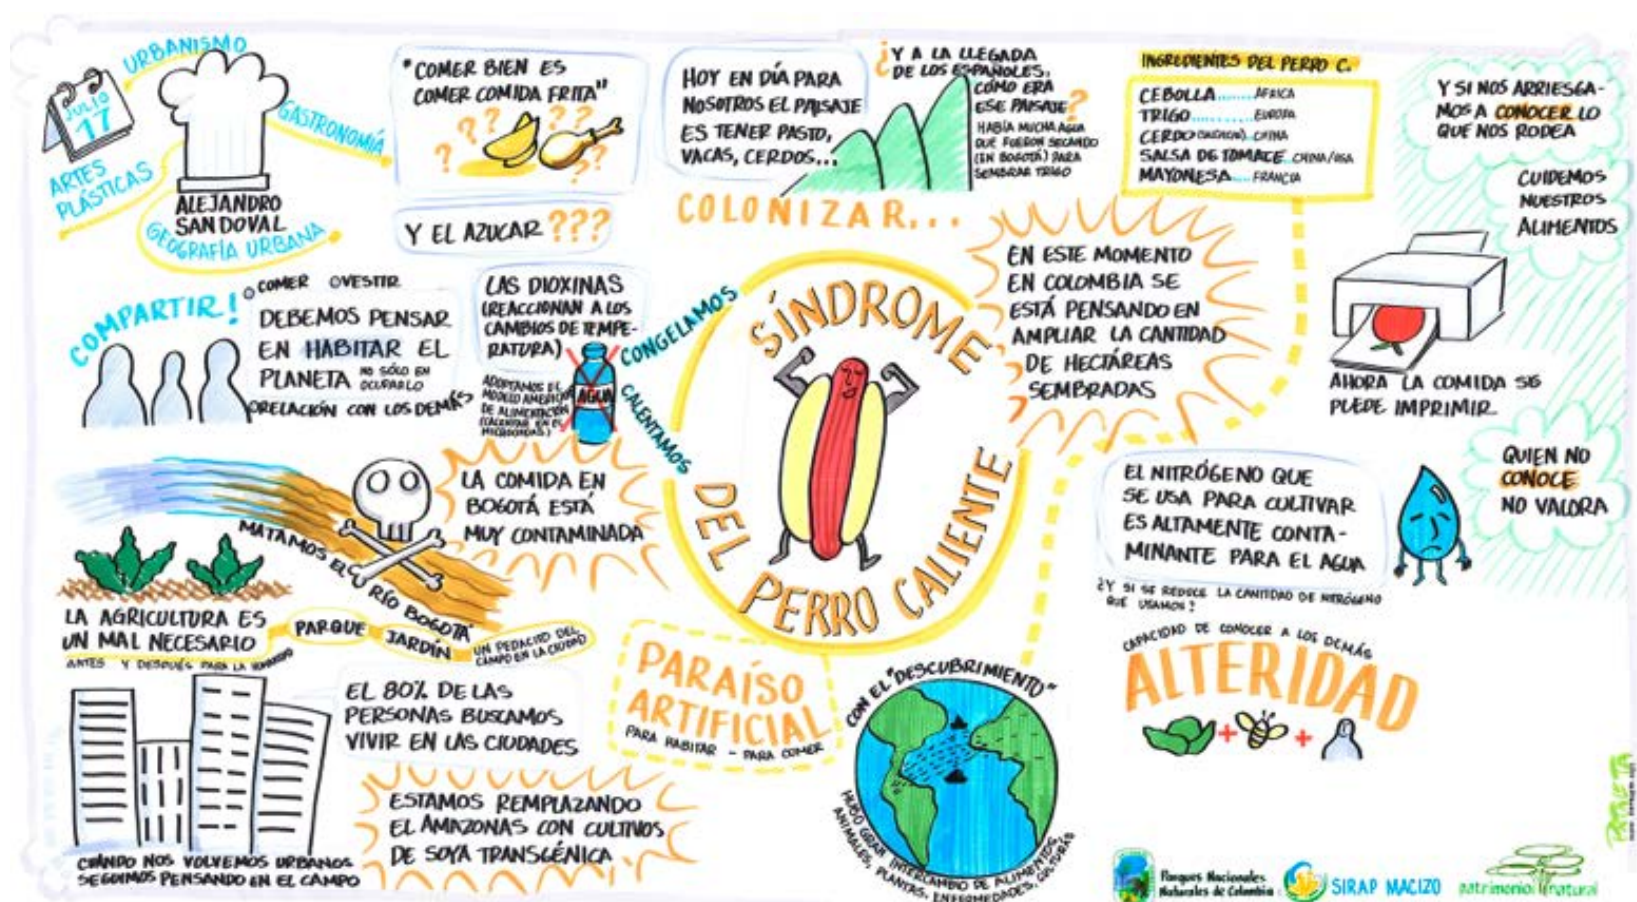 URBANISMO
JULIO
17
ARTES
PLÁSTICAS
GASTRONOMÍA
ALEJANDRO
SANDOVAL
GEOGRAFÍA URBANA
"COMER BIEN ES
COMER COMIDA FRITA"
? ? ? ? ? ?
Y EL AZUCAR ???
HOY EN DÍA PARA
NOSOTROS EL PAISAJE
ES TENER PASTO,
VACAS, CERDOS...
¿Y A LA LLEGADA
DE LOS ESPAÑOLES,
CÓMO ERA
ESE PAISAJE?
HABÍA MUCHA AGUA
QUE FUERON SECANDO
(EN BOGOTÁ) PARA
SEMBRAR TRIGO
COLONIZAR...
INGREDIENTES DEL PERRO C.
CEBOLLA......ÁFRICA
TRIGO..........EUROPA
CERDO (SALCHICHA)..CHINA
SALSA DE TOMATE..CHINA/USA
MAYONESA....FRANCIA
Y SI NOS ARRIESGA-
MOS A CONOCER LO
QUE NOS RODEA
CUIDEMOS
NUESTROS
ALIMENTOS
AHORA LA COMIDA SE
PUEDE IMPRIMIR
QUIEN NO
CONOCE
NO VALORA
COMPARTIR!
COMER VESTIR
DEBEMOS PENSAR
EN HABITAR EL
PLANETA NO SÓLO EN
OCUPARLO
RELACIÓN CON LOS DEMÁS
LAS DIOXINAS
(REACCIONAN A LOS
CAMBIOS DE TEMPE-
RATURA)
ADOPTAMOS EL
MODELO AMERICANO
DE ALIMENTACIÓN
(CALENTAR EN EL
MICROONDAS)
AGUA
CONGELAMOS
CALENTAMOS
SÍNDROME
DEL PERRO CALIENTE
EN ESTE MOMENTO
EN COLOMBIA SE
ESTÁ PENSANDO EN
AMPLIAR LA CANTIDAD
DE HECTÁREAS
SEMBRADAS
LA COMIDA EN
BOGOTÁ ESTÁ
MUY CONTAMINADA
MATAMOS EL RÍO BOGOTÁ
LA AGRICULTURA ES
UN MAL NECESARIO
ANTES Y DESPUÉS PARA LA
PARQUE
JARDÍN
UN PEDACITO DEL
CAMPO EN LA CIUDAD
EL 80% DE LAS
PERSONAS BUSCAMOS
VIVIR EN LAS CIUDADES
CUÁNDO NOS VOLVEMOS URBANOS
SEGUIMOS PENSANDO EN EL CAMPO
ESTAMOS REMPLAZANDO
EL AMAZONAS CON CULTIVOS
DE SOYA TRANSGÉNICA
PARAÍSO
ARTIFICIAL
PARA HABITAR - PARA COMER
CON EL "DESCUBRIMIENTO"
HUBO GRAN INTERCAMBIO DE ALIMENTOS,
ANIMALES, PLANTAS, ENFERMEDADES, CULTURAS
EL NITRÓGENO QUE
SE USA PARA CULTIVAR
ES ALTAMENTE CONTA-
MINANTE PARA EL AGUA
¿Y SI SE REDUCE LA CANTIDAD DE NITRÓGENO
QUE USAMOS?
CAPACIDAD DE CONOCER A LOS DEMÁS
ALTERIDAD
+ +
Parques Nacionales
Naturales de Colombia
SIRAP MACIZO
patrimonio natural